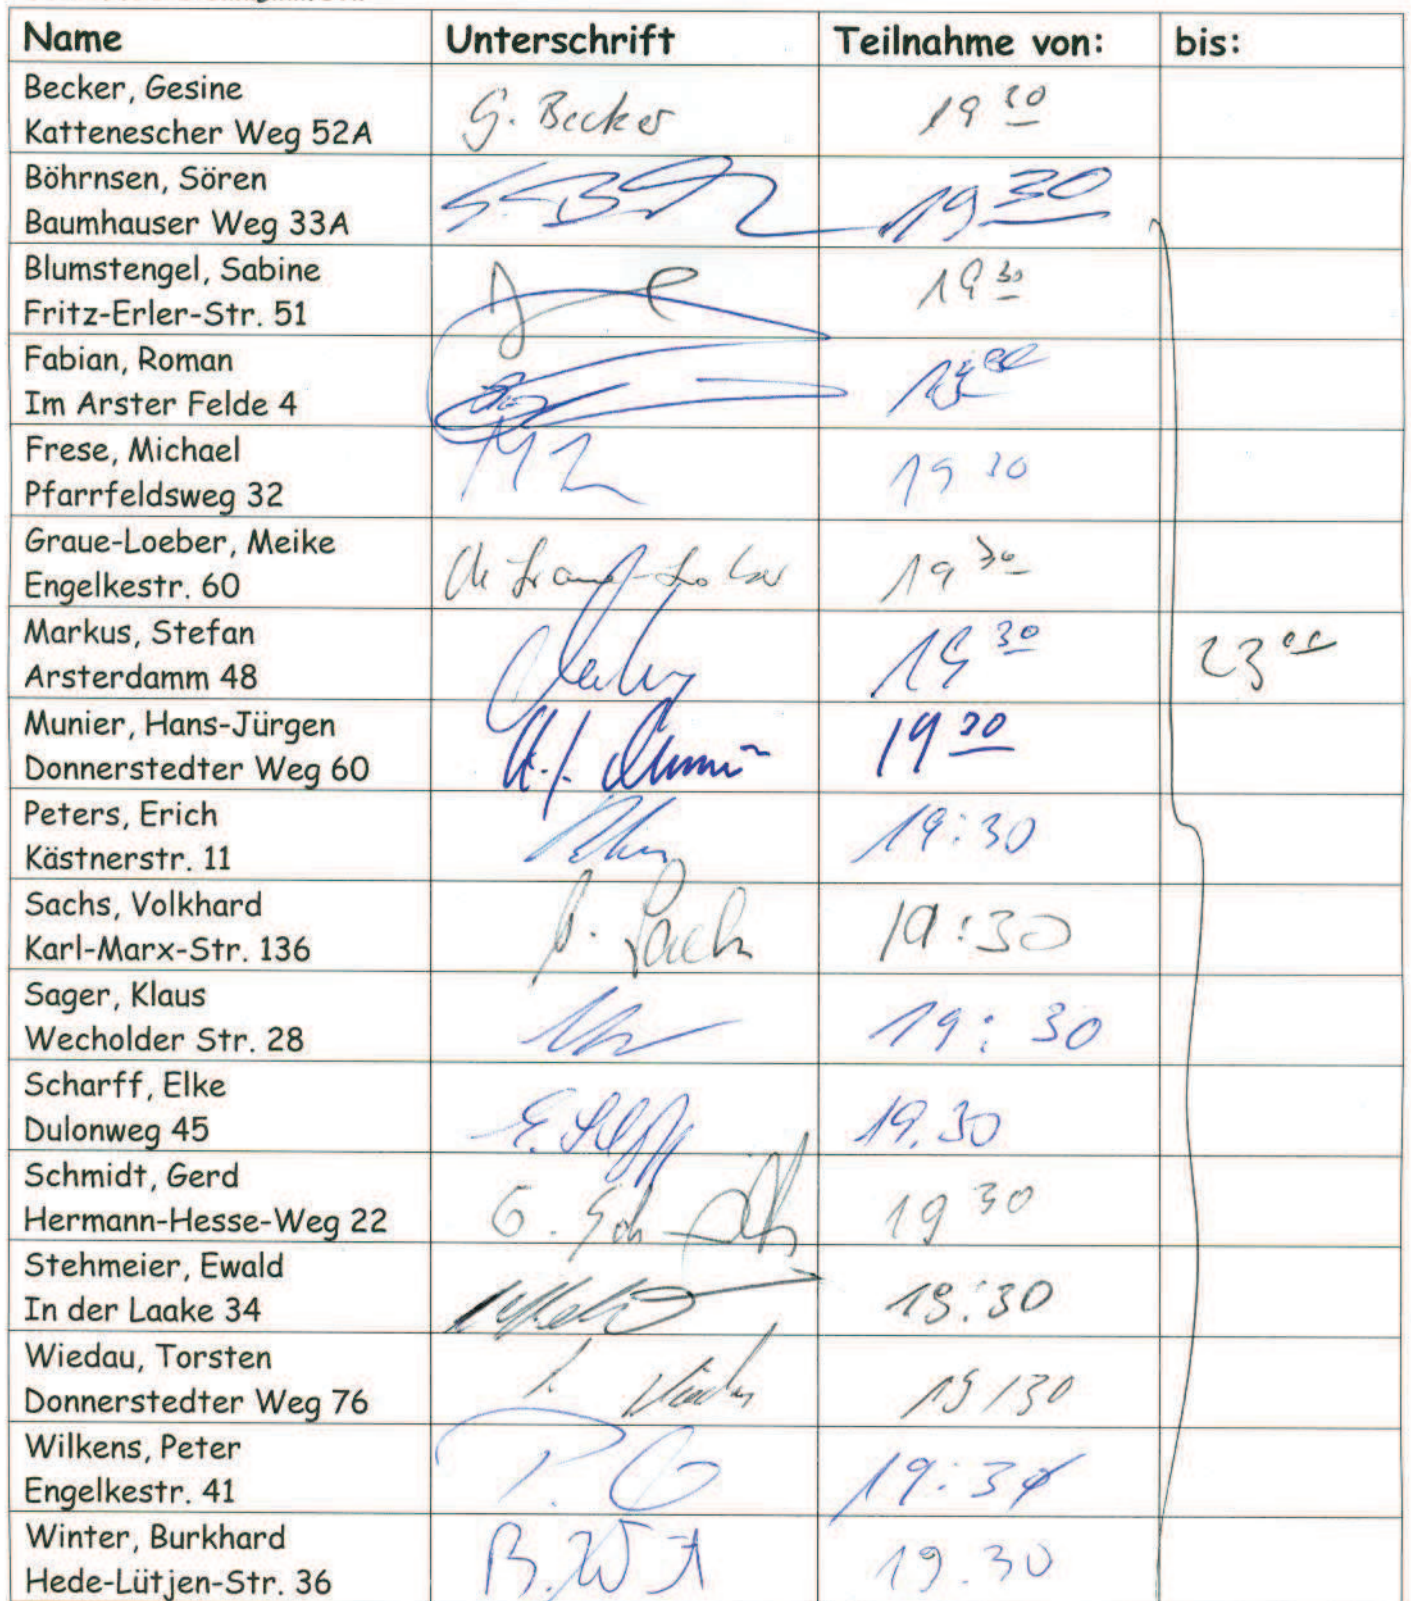 Name Unterschrift Teilnahme von: bis:
Becker, Gesine
Kattenescher Weg 52A G. Becker 19 30
Böhrnsen, Sören
Baumhauser Weg 33A 19 30
Blumstengel, Sabine
Fritz-Erler-Str. 51 19 30
Fabian, Roman
Im Arster Felde 4
Frese, Michael
Pfarrfeldsweg 32 19 30
Graue-Loeber, Meike
Engelkestr. 60 M Graue-Loeber 19 30
Markus, Stefan
Arsterdamm 48 19 30 23 00
Munier, Hans-Jürgen
Donnerstedter Weg 60 H.J. Munier 19 30
Peters, Erich
Kästnerstr. 11 19:30
Sachs, Volkhard
Karl-Marx-Str. 136 V. Sachs 19:30
Sager, Klaus
Wecholder Str. 28 19:30
Scharff, Elke
Dulonweg 45 E. Scharff 19.30
Schmidt, Gerd
Hermann-Hesse-Weg 22 G. Schmidt 19 30
Stehmeier, Ewald
In der Laake 34 19:30
Wiedau, Torsten
Donnerstedter Weg 76 T. Wiedau 19/30
Wilkens, Peter
Engelkestr. 41 P. 19:30
Winter, Burkhard
Hede-Lütjen-Str. 36 B. 19.30